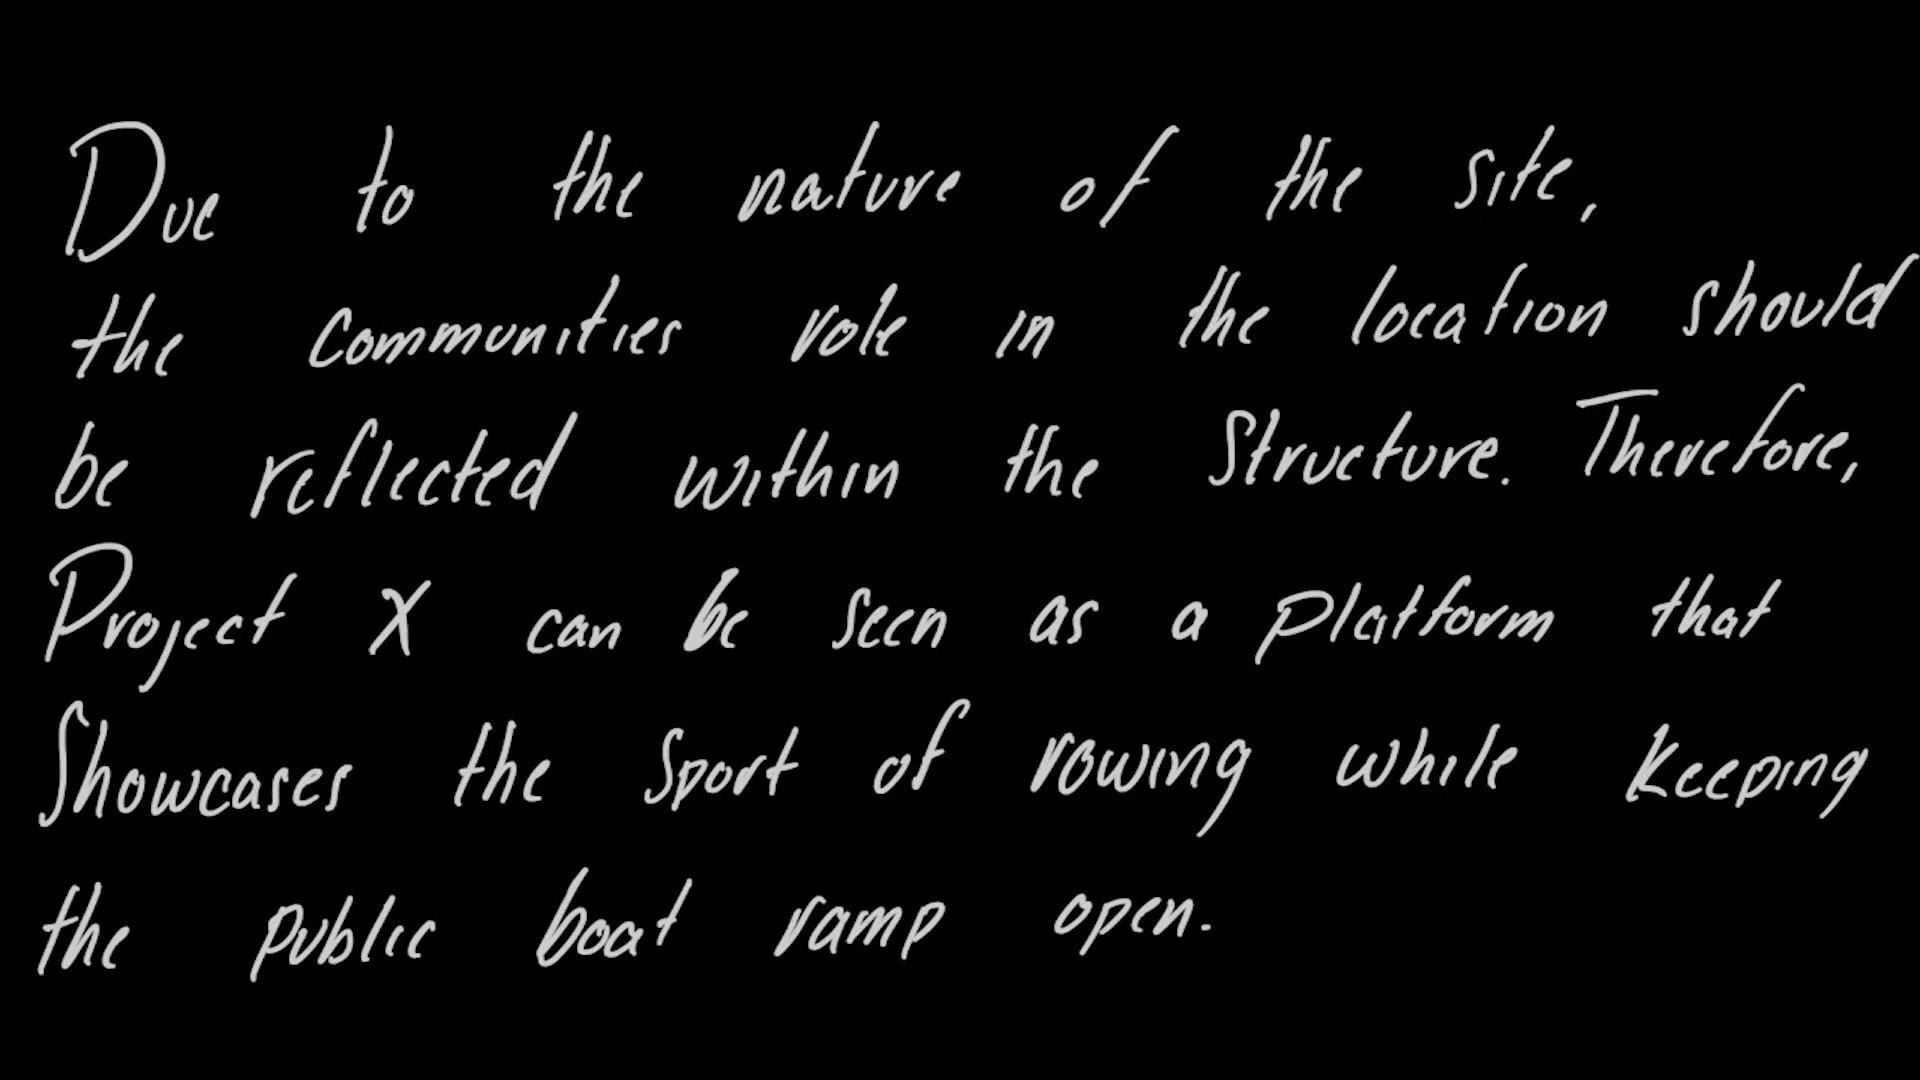 Due to the nature of the site,
the communities role in the location should
be reflected within the Structure. Therefore,
Project X can be seen as a platform that
Showcases the Sport of rowing while keeping
the public boat ramp open.